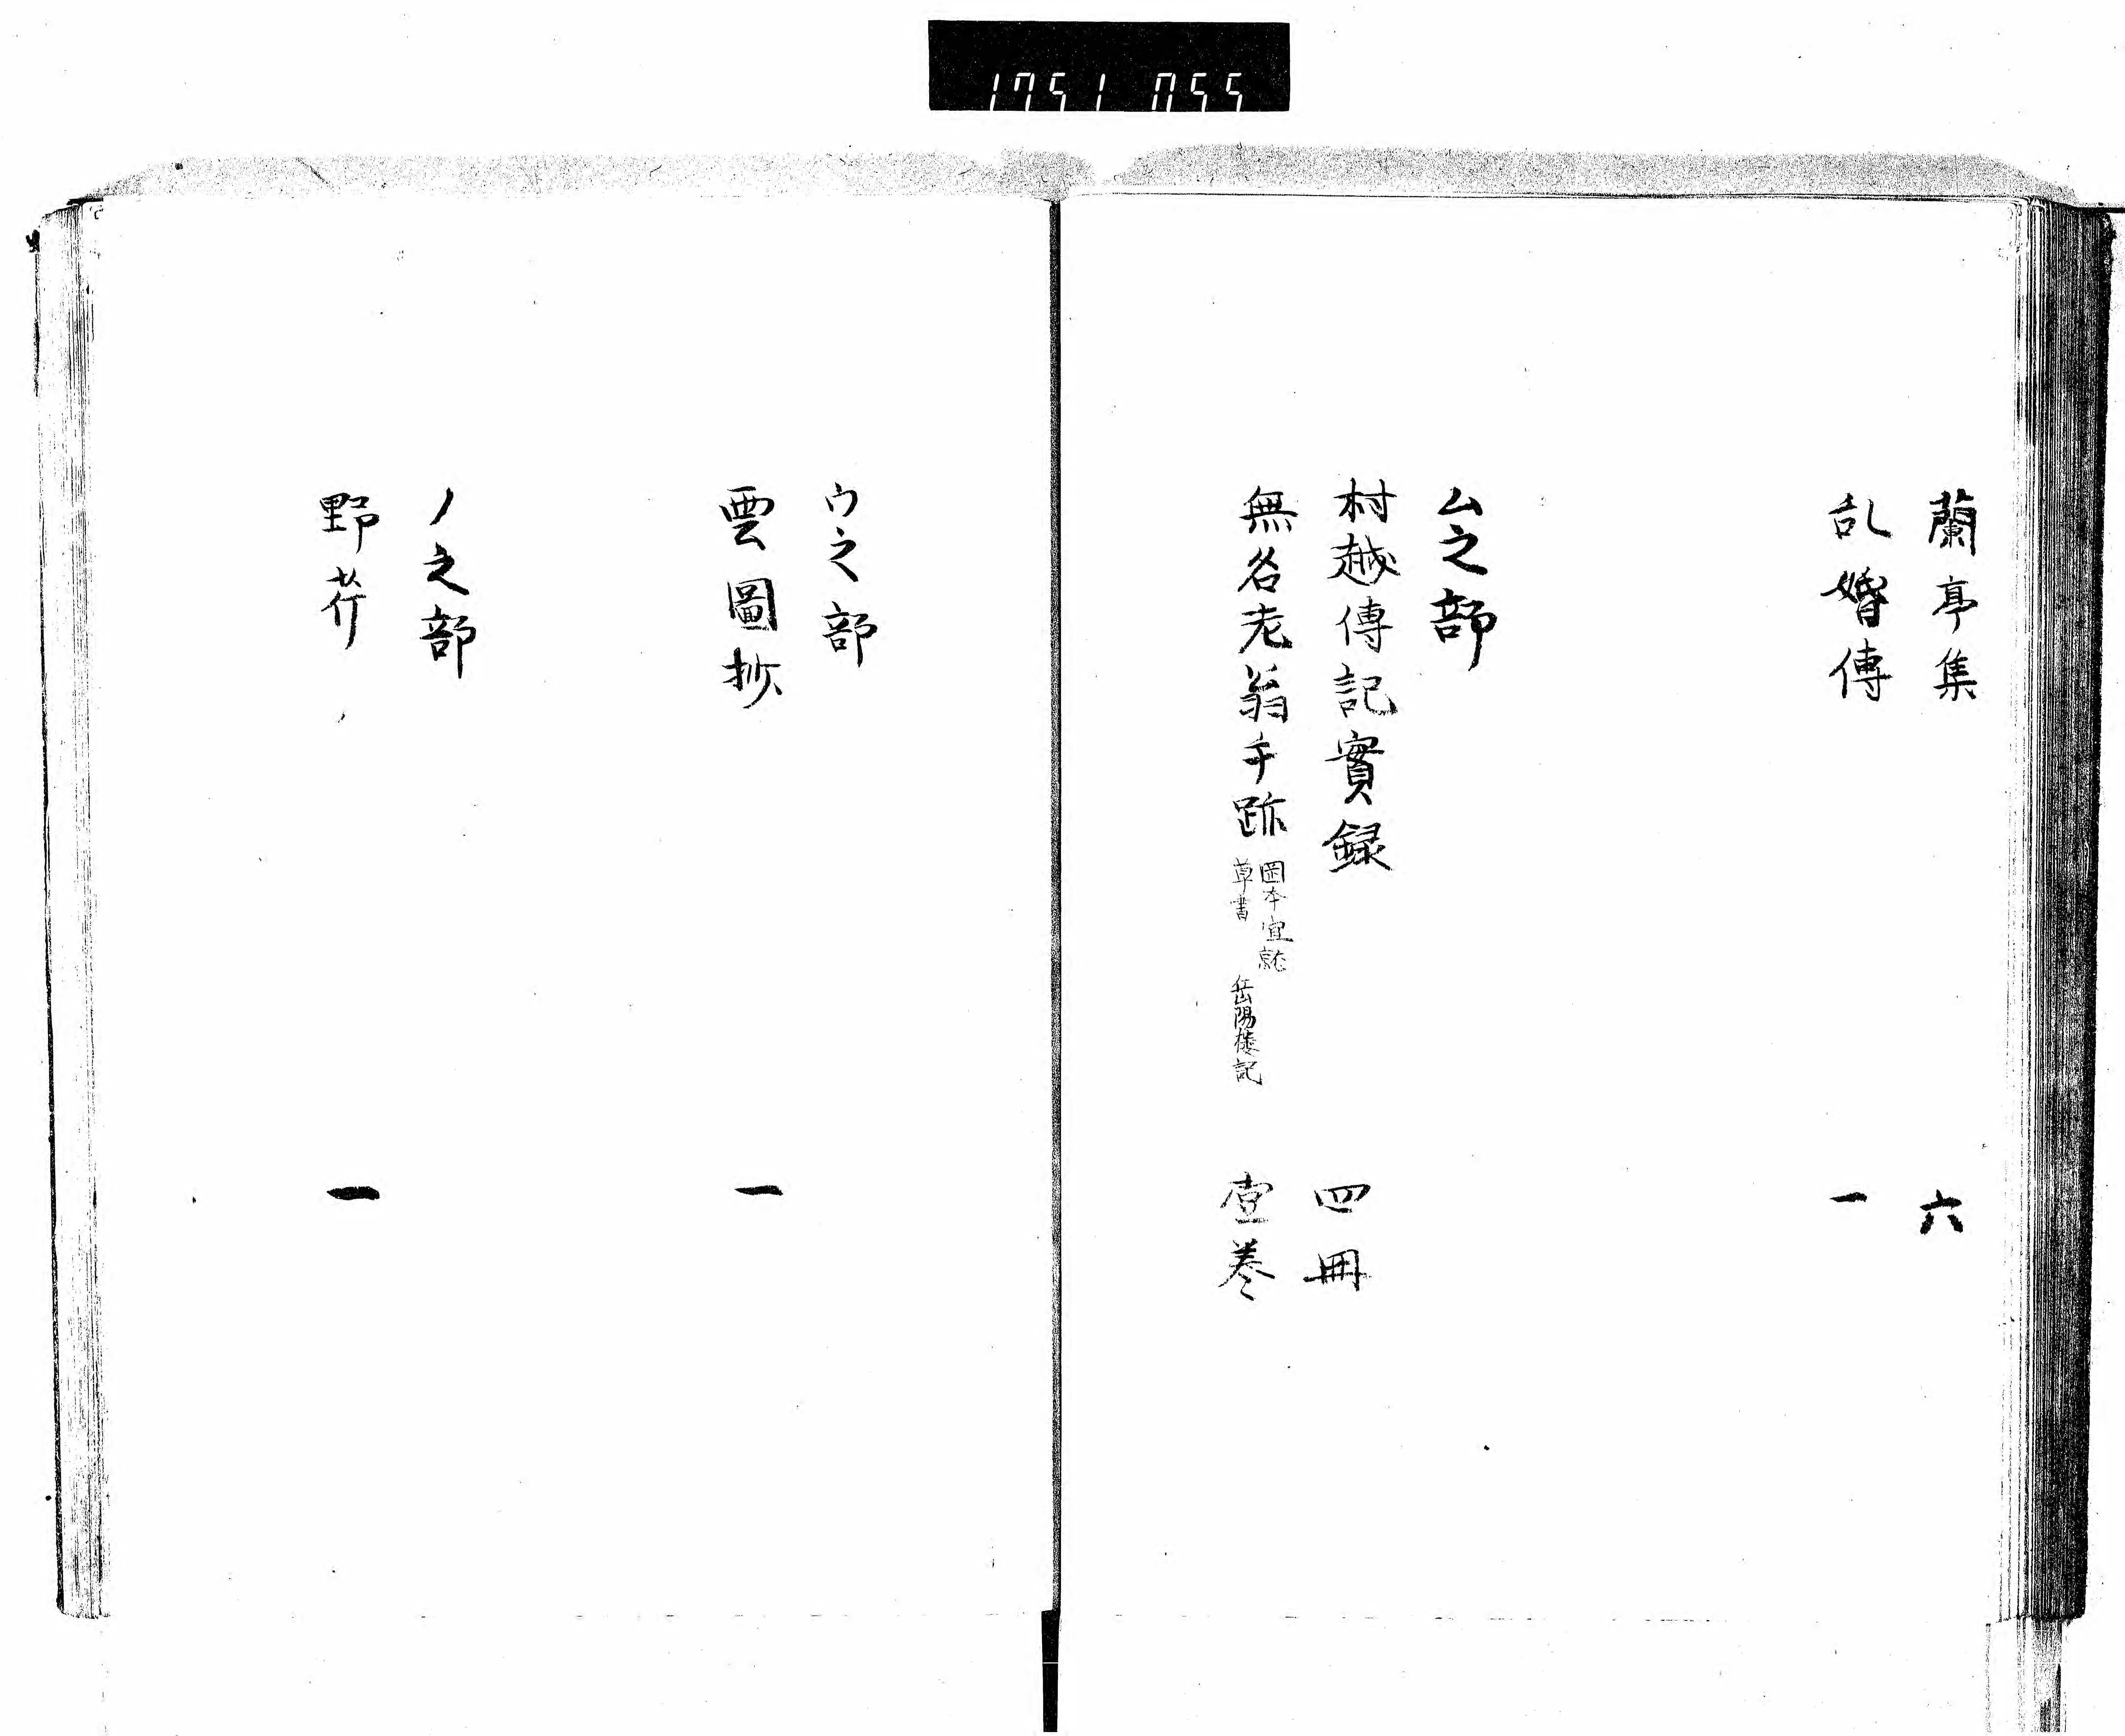 1751 055
蘭亭集 六
乱婚傳 一
ム之部
村越傳記實録 四冊
無名老翁手跡 岡本宣就 草書 岳陽樓記 壹巻
ウ之部
雲圖抄 一
ノ之部
野芥 一